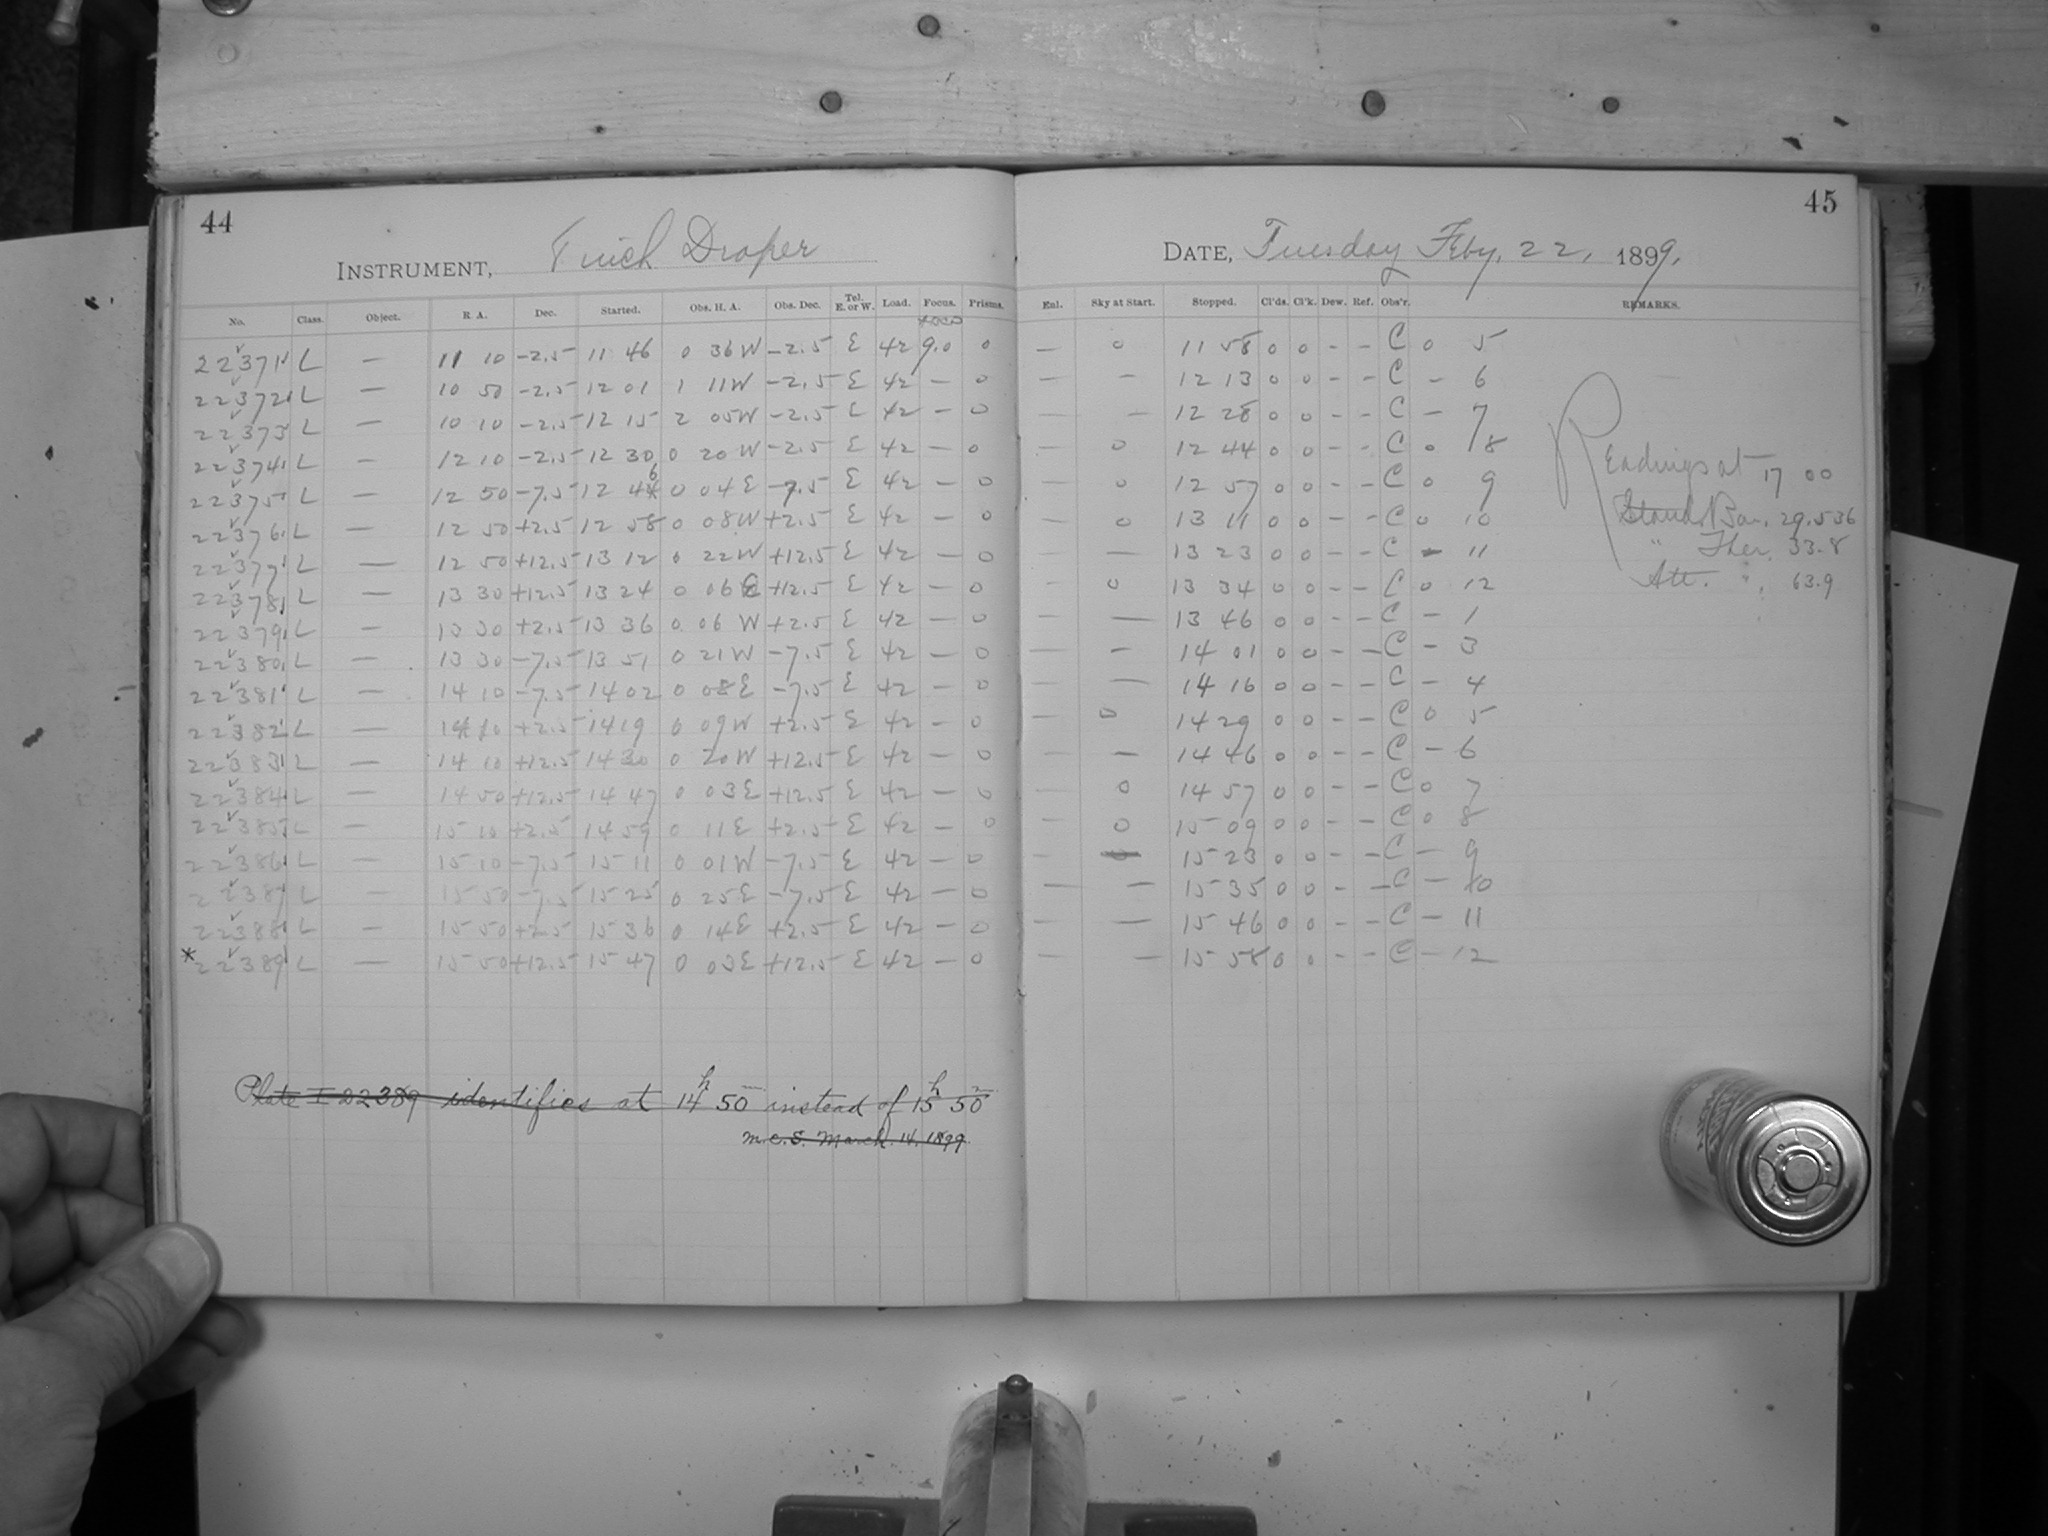 44
INSTRUMENT, 8 inch Draper
No. Class. Object. R A. Dec. Started. Obs. H. A. Obs. Dec. Tel. E. or W. Load. Focus. Prisms.
22371 L — 11 10 -2.5 11 46 0 36 W -2.5 E 42 9.0 0
22372 L — 10 50 -2.5 12 01 1 11 W -2.5 E 42 — 0
22373 L — 10 10 -2.5 12 15 2 05 W -2.5 E 42 — 0
22374 L — 12 10 -2.5 12 30 0 20 W -2.5 E 42 — 0
22375 L — 12 50 -7.5 12 46 0 04 E -7.5 E 42 — 0
22376 L — 12 50 +2.5 12 58 0 08 W +2.5 E 42 — 0
22377 L — 12 50 +12.5 13 12 0 22 W +12.5 E 42 — 0
22378 L — 13 30 +12.5 13 24 0 06 E +12.5 E 42 — 0
22379 L — 13 30 +2.5 13 36 0 06 W +2.5 E 42 — 0
22380 L — 13 30 -7.5 13 51 0 21 W -7.5 E 42 — 0
22381 L — 14 10 -7.5 14 02 0 08 E -7.5 E 42 — 0
22382 L — 14 10 +2.5 14 19 0 09 W +2.5 E 42 — 0
22383 L — 14 10 +12.5 14 30 0 20 W +12.5 E 42 — 0
22384 L — 14 50 +12.5 14 47 0 03 E +12.5 E 42 — 0
22385 L — 15 10 +2.5 14 59 0 11 E +2.5 E 42 — 0
22386 L — 15 10 -7.5 15 11 0 01 W -7.5 E 42 — 0
22387 L — 15 50 -7.5 15 25 0 25 E -7.5 E 42 — 0
22388 L — 15 50 +2.5 15 36 0 14 E +2.5 E 42 — 0
*22389 L — 15 50 +12.5 15 47 0 03 E +12.5 E 42 — 0
Plate I 22389 identifies at 14h 50 instead of 15h 50
M.C.S. March 14, 1899.
45
DATE, Tuesday Feby. 22, 1899.
Enl. Sky at Start. Stopped. Cl'ds. Cl'k. Dew. Ref. Obs'r. REMARKS.
— 0 11 58 0 0 - - C 0 5
— — 12 13 0 0 - - C — 6
— — 12 28 0 0 - - C — 7
— 0 12 44 0 0 - - C 0 8
— 0 12 57 0 0 - - C 0 9
— 0 13 11 0 0 - - C 0 10
— — 13 23 0 0 - - C — 11
— 0 13 34 0 0 - - C 0 12
— — 13 46 0 0 - - C — 1
— — 14 01 0 0 - - C — 3
— — 14 16 0 0 - - C — 4
— 0 14 29 0 0 - - C 0 5
— — 14 46 0 0 - - C — 6
— 0 14 57 0 0 - - C 0 7
— 0 15 09 0 0 - - C 0 8
— — 15 23 0 0 - - C — 9
— — 15 35 0 0 - - C — 10
— — 15 46 0 0 - - C — 11
— — 15 58 0 0 - - C — 12
Readings at 17 00
Stand. Bar. 29.536
" Ther. 33.8
Att. " 63.9